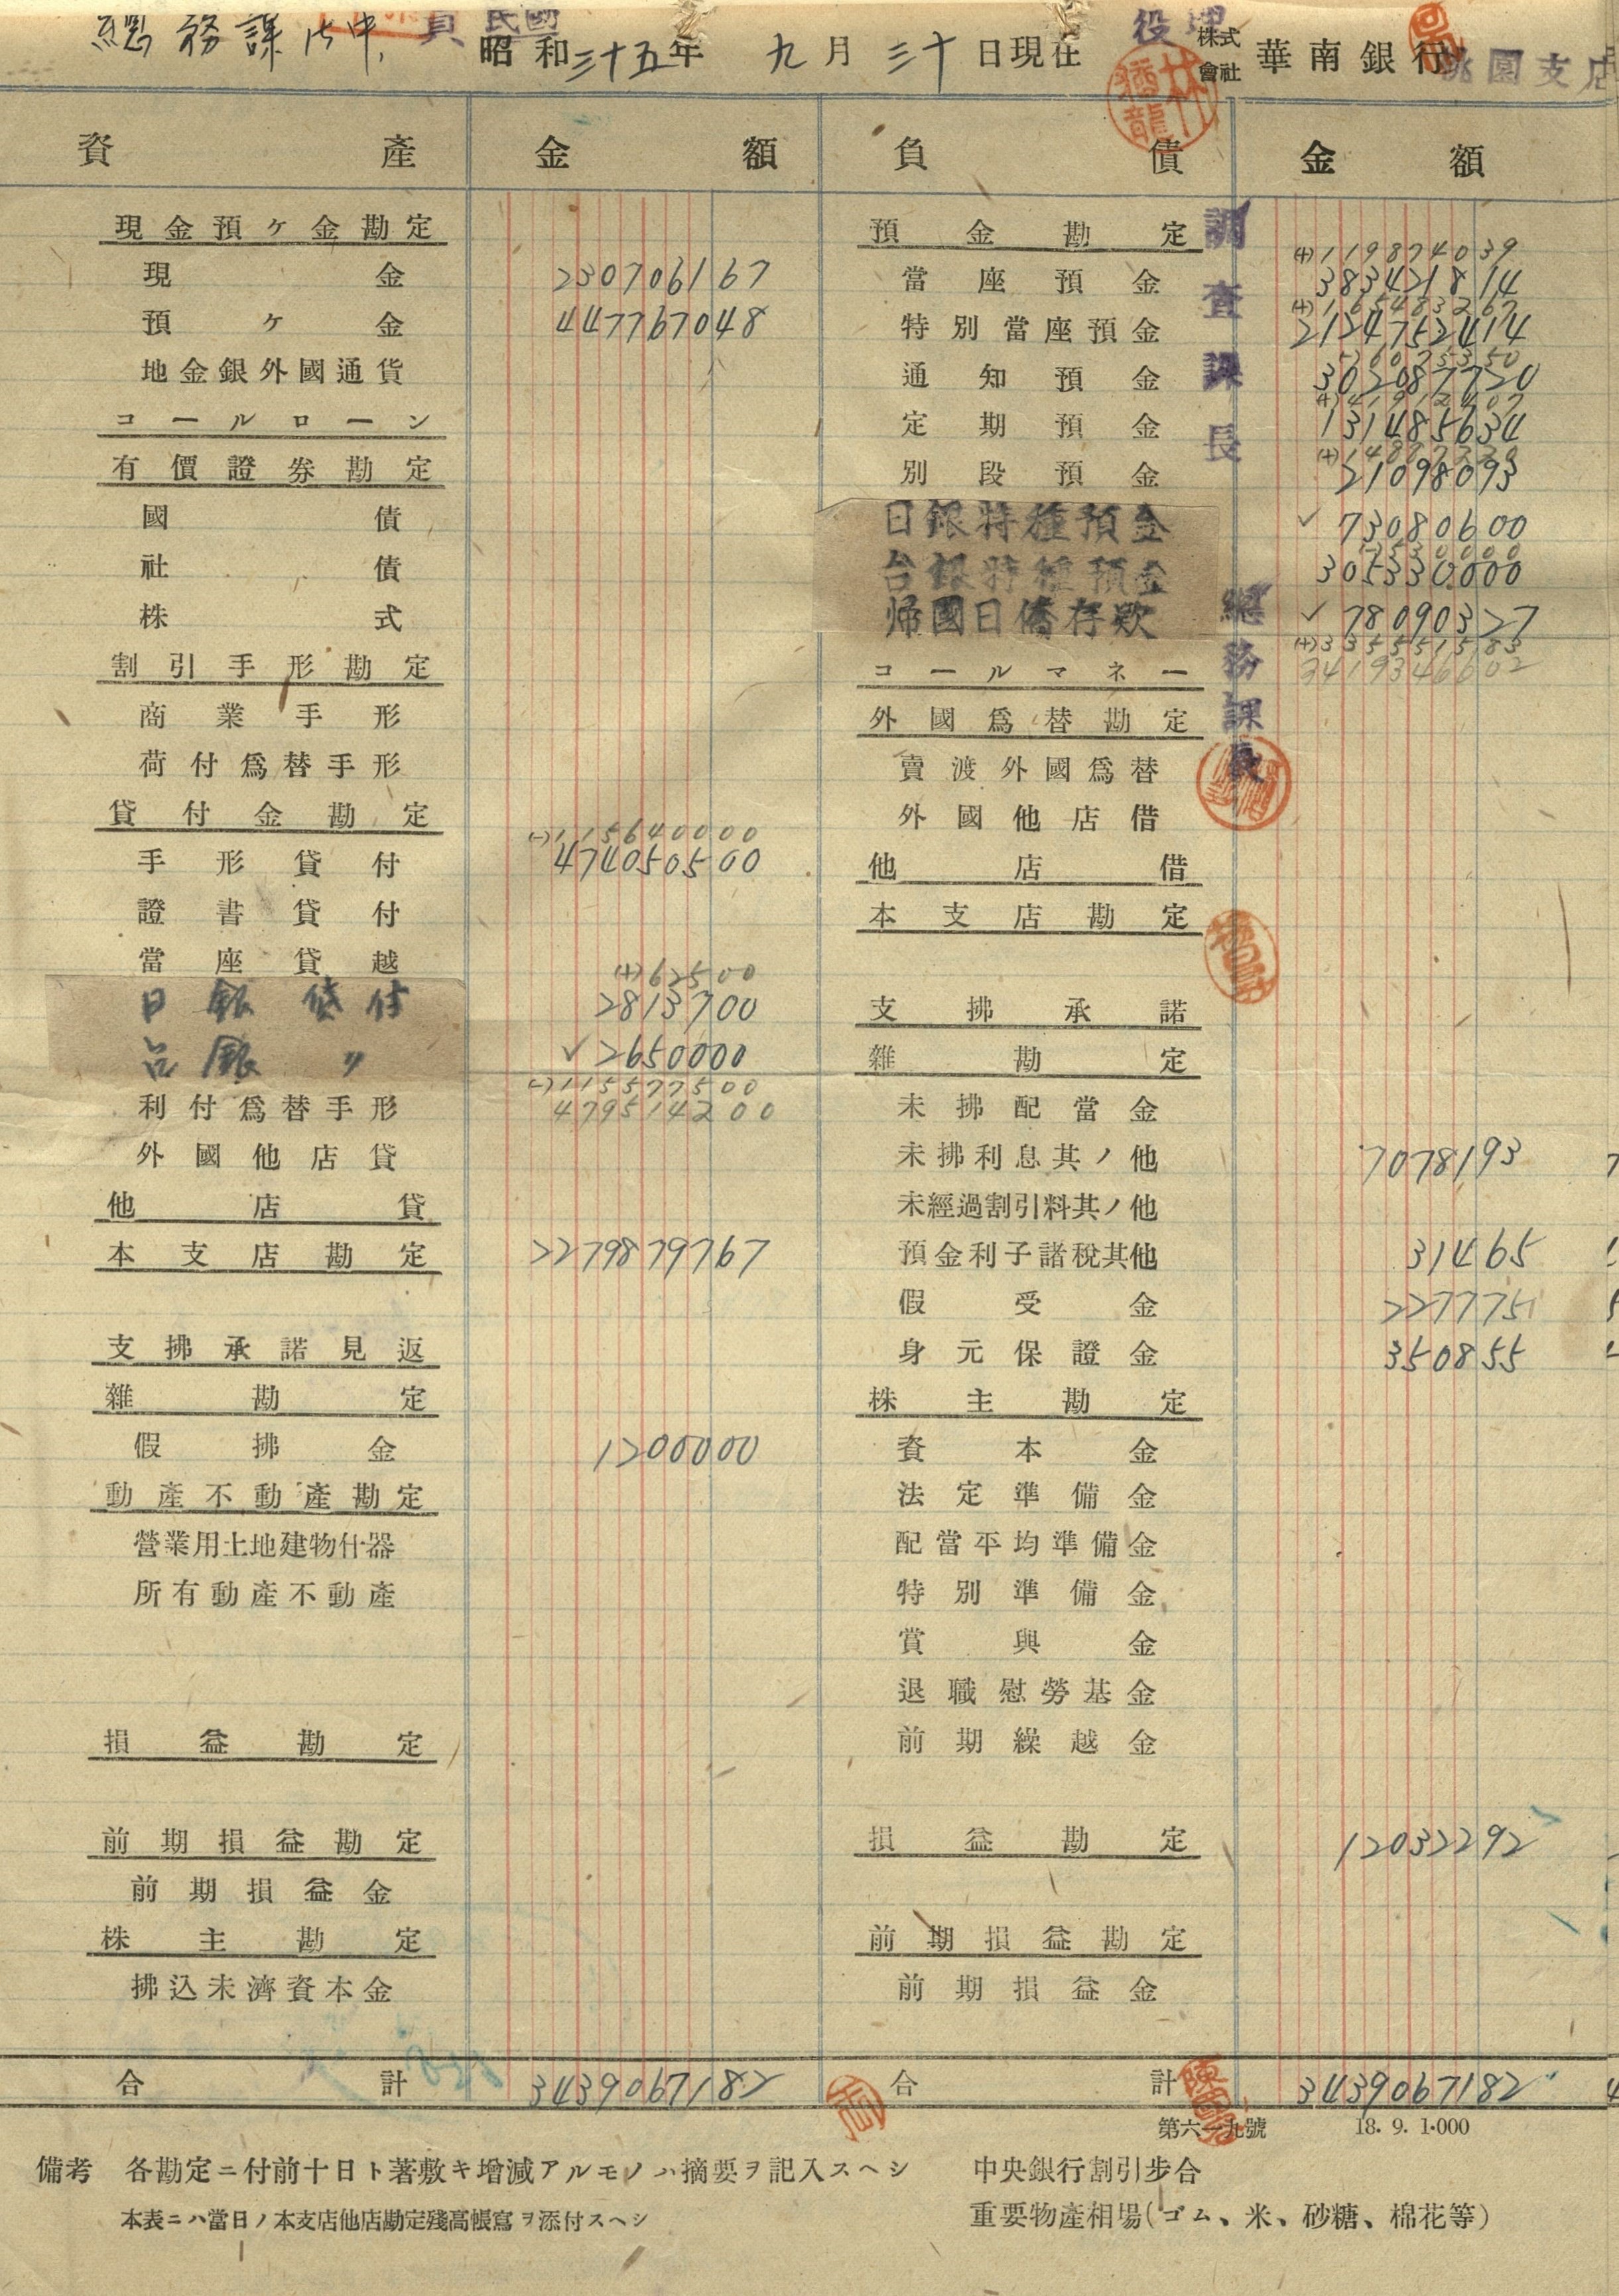 總務課御中
昭和三十五年 九月三十日現在 株式會社 華南銀行 桃園支店
資產 金額 負債 金額
現金預ケ金勘定
現金 2307061 67
預ケ金 4477670 48
地金銀外國通貨
コールローン
有價證券勘定
國債
社債
株式
割引手形勘定
商業手形
荷付爲替手形
貸付金勘定
(-)1156400 00
手形貸付 4740505 00
證書貸付
當座貸越
(+)625 00
日銀貸付 28137 00
台銀〃 ✓26500 00
(-)1155775 00
利付爲替手形 4795142 00
外國他店貸
他店貸
本支店勘定 22798797 67
支拂承諾見返
雜勘定
假拂金 12000 00
動產不動產勘定
營業用土地建物什器
所有動產不動產
損益勘定
前期損益勘定
前期損益金
株主勘定
拂込未濟資本金
合計 34390671 82
預金勘定
(+)1198740 39
當座預金 3834218 14
(+)1654832 67
特別當座預金 21247524 14
通知預金 3020877 20
定期預金 1314856 34
別段預金 210980 93
日銀特種預金 ✓730806 00
台銀特種預金 3053300 00
帰國日僑存欵 ✓780903 27
(+)3355515 83
コールマネー 34193466 02
外國爲替勘定
賣渡外國爲替
外國他店借
他店借
本支店勘定
支拂承諾
雜勘定
未拂配當金
未拂利息其ノ他 70781 93
未經過割引料其ノ他
預金利子諸稅其他 314 65
假受金 2277 75
身元保證金 3508 55
株主勘定
資本金
法定準備金
配當平均準備金
特別準備金
賞與金
退職慰勞基金
前期繰越金
損益勘定 120322 92
前期損益勘定
前期損益金
合計 34390671 82
調查課長
總務課長
第六一九號 18. 9. 1·000
備考 各勘定ニ付前十日ト著敷キ增減アルモノハ摘要ヲ記入スヘシ
本表ニハ當日ノ本支店他店勘定殘高帳寫ヲ添付スヘシ
中央銀行割引步合
重要物產相場(ゴム、米、砂糖、棉花等)